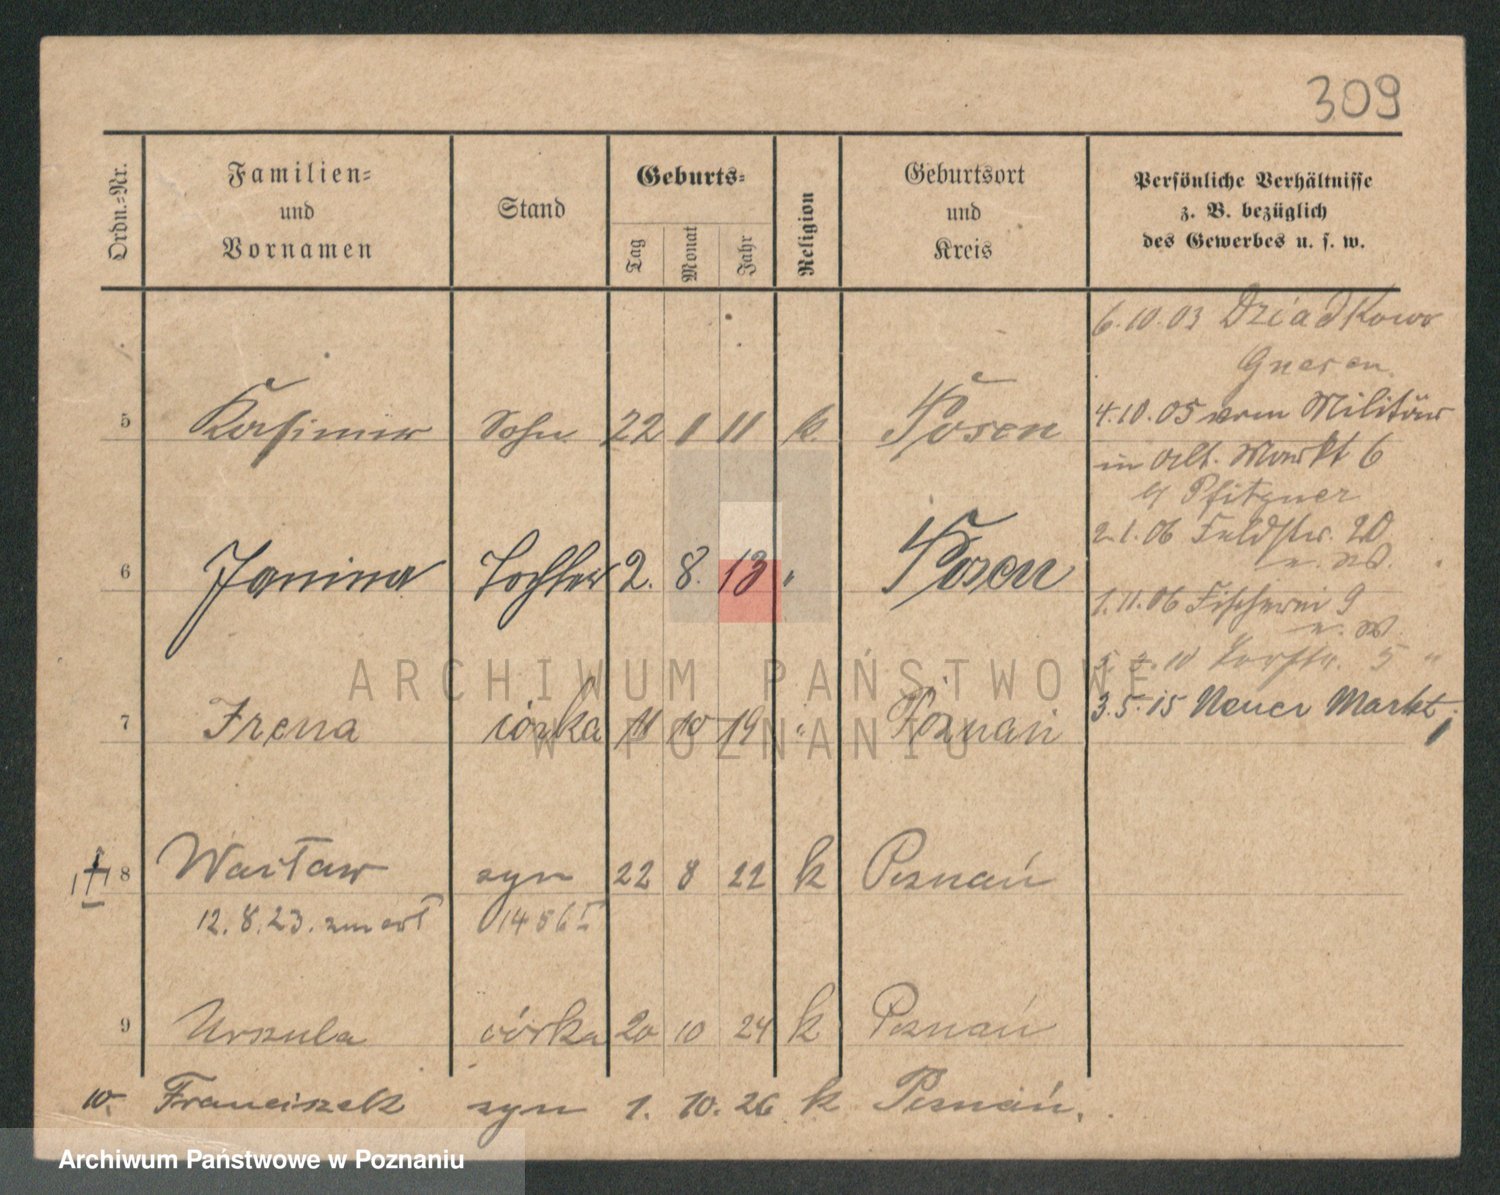 309
Ordn.-Nr.
Familien-
und
Vornamen
Stand
Geburts-
Tag
Monat
Jahr
Religion
Geburtsort
und
Kreis
Persönliche Verhältnisse
z. B. bezüglich
des Gewerbes u. s. w.
6.10.03 Dziadkowo
Gnesen.
4.10.05 vom Militär
in Alt. Markt 6
b/ Pfitzner
2.1.06 Feldstr. 20
1.11.06 Fischerei 9
3.5.15 Neuer Markt
5 Kasimir Sohn 22 1 11 k. Posen
6 Janina Tochter 2. 8. 13 " Posen
7 Irena córka 11 10 19 " Poznań
8 Wacław syn 22 8 22 k Poznań
12.8.23. zmarł
9 Urszula córka 20 10 24 k Poznań
10. Franciszek syn 1. 10. 26 k Poznań.
ARCHIWUM PAŃSTWOWE
W POZNANIU
Archiwum Państwowe w Poznaniu